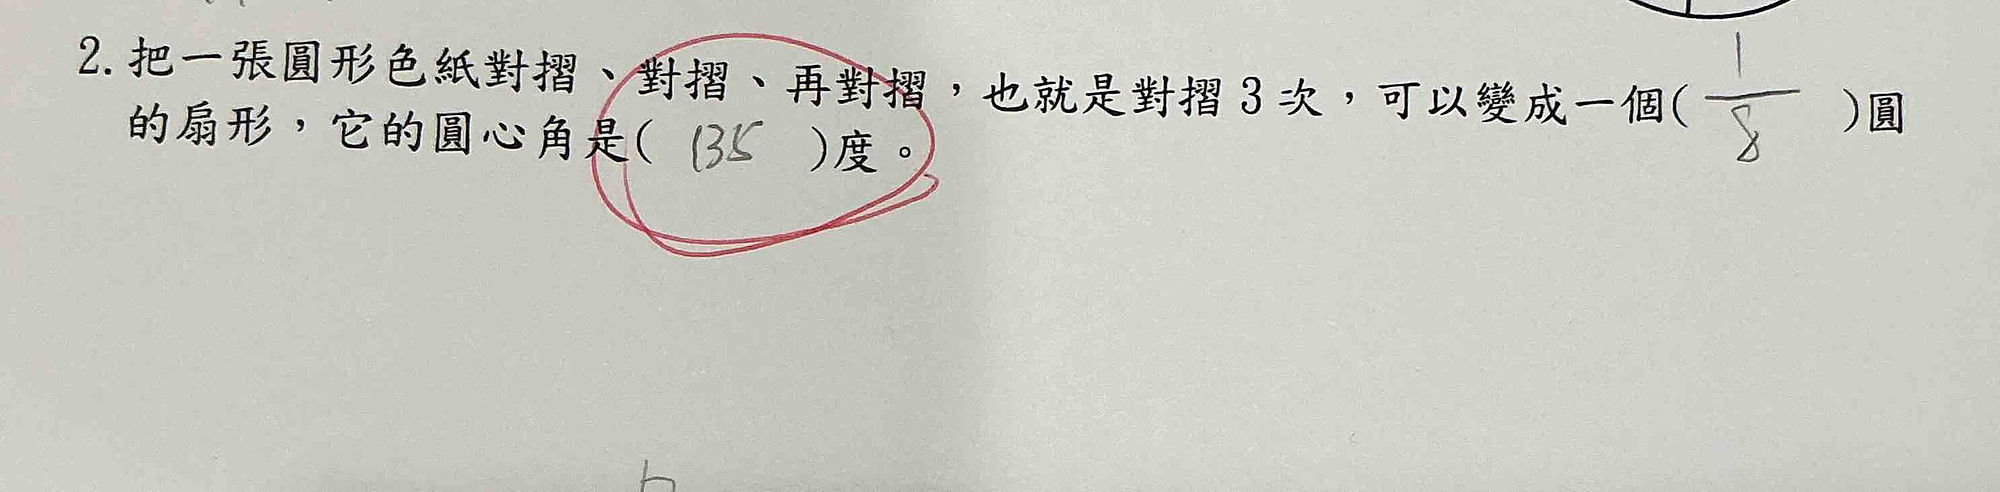 2. 把一張圓形色紙對摺、對摺、再對摺，也就是對摺3次，可以變成一個( 1/8 )圓
的扇形，它的圓心角是( 135 )度。